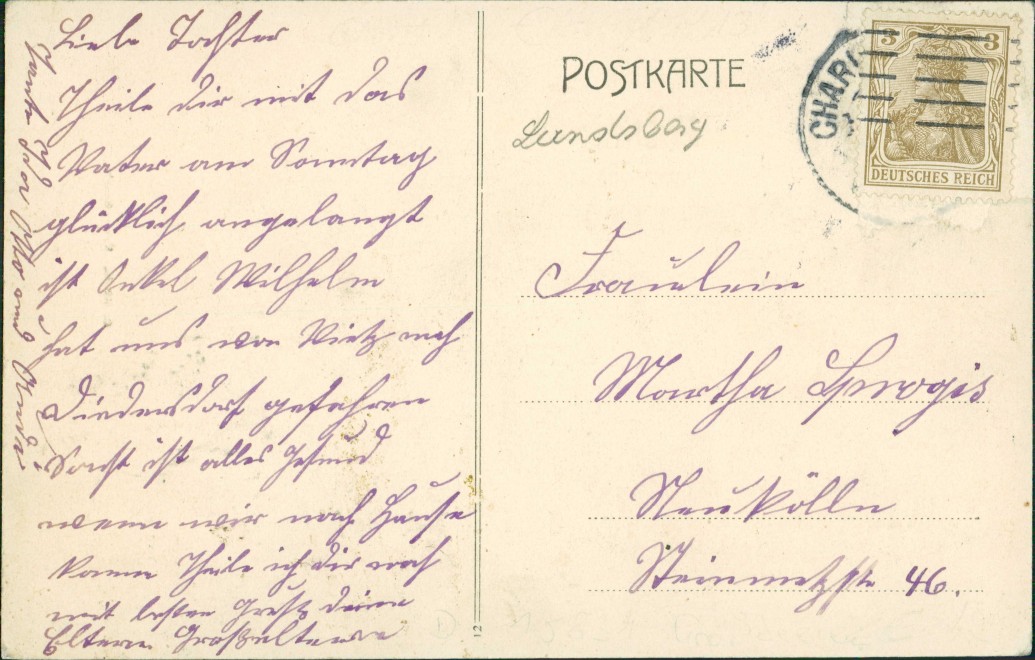 Liebe Tochter
Theile dir mit das
Vater am Sonntag
glücklich angelangt
ist Onkel Wilhelm
hat uns von Vietz nach
Diedersdorf gefahren
Sonst ist alles Gesund
wenn wir nach Hause
komm Theile ich dir noch
mit besten Gruß deine
Eltern Großeltern
Tante
und
POSTKARTE
Landsberg
CHARL
3 3
DEUTSCHES REICH
Fräulein
Martha Sprogis
Neukölln
Steinmetzstr 46.
12